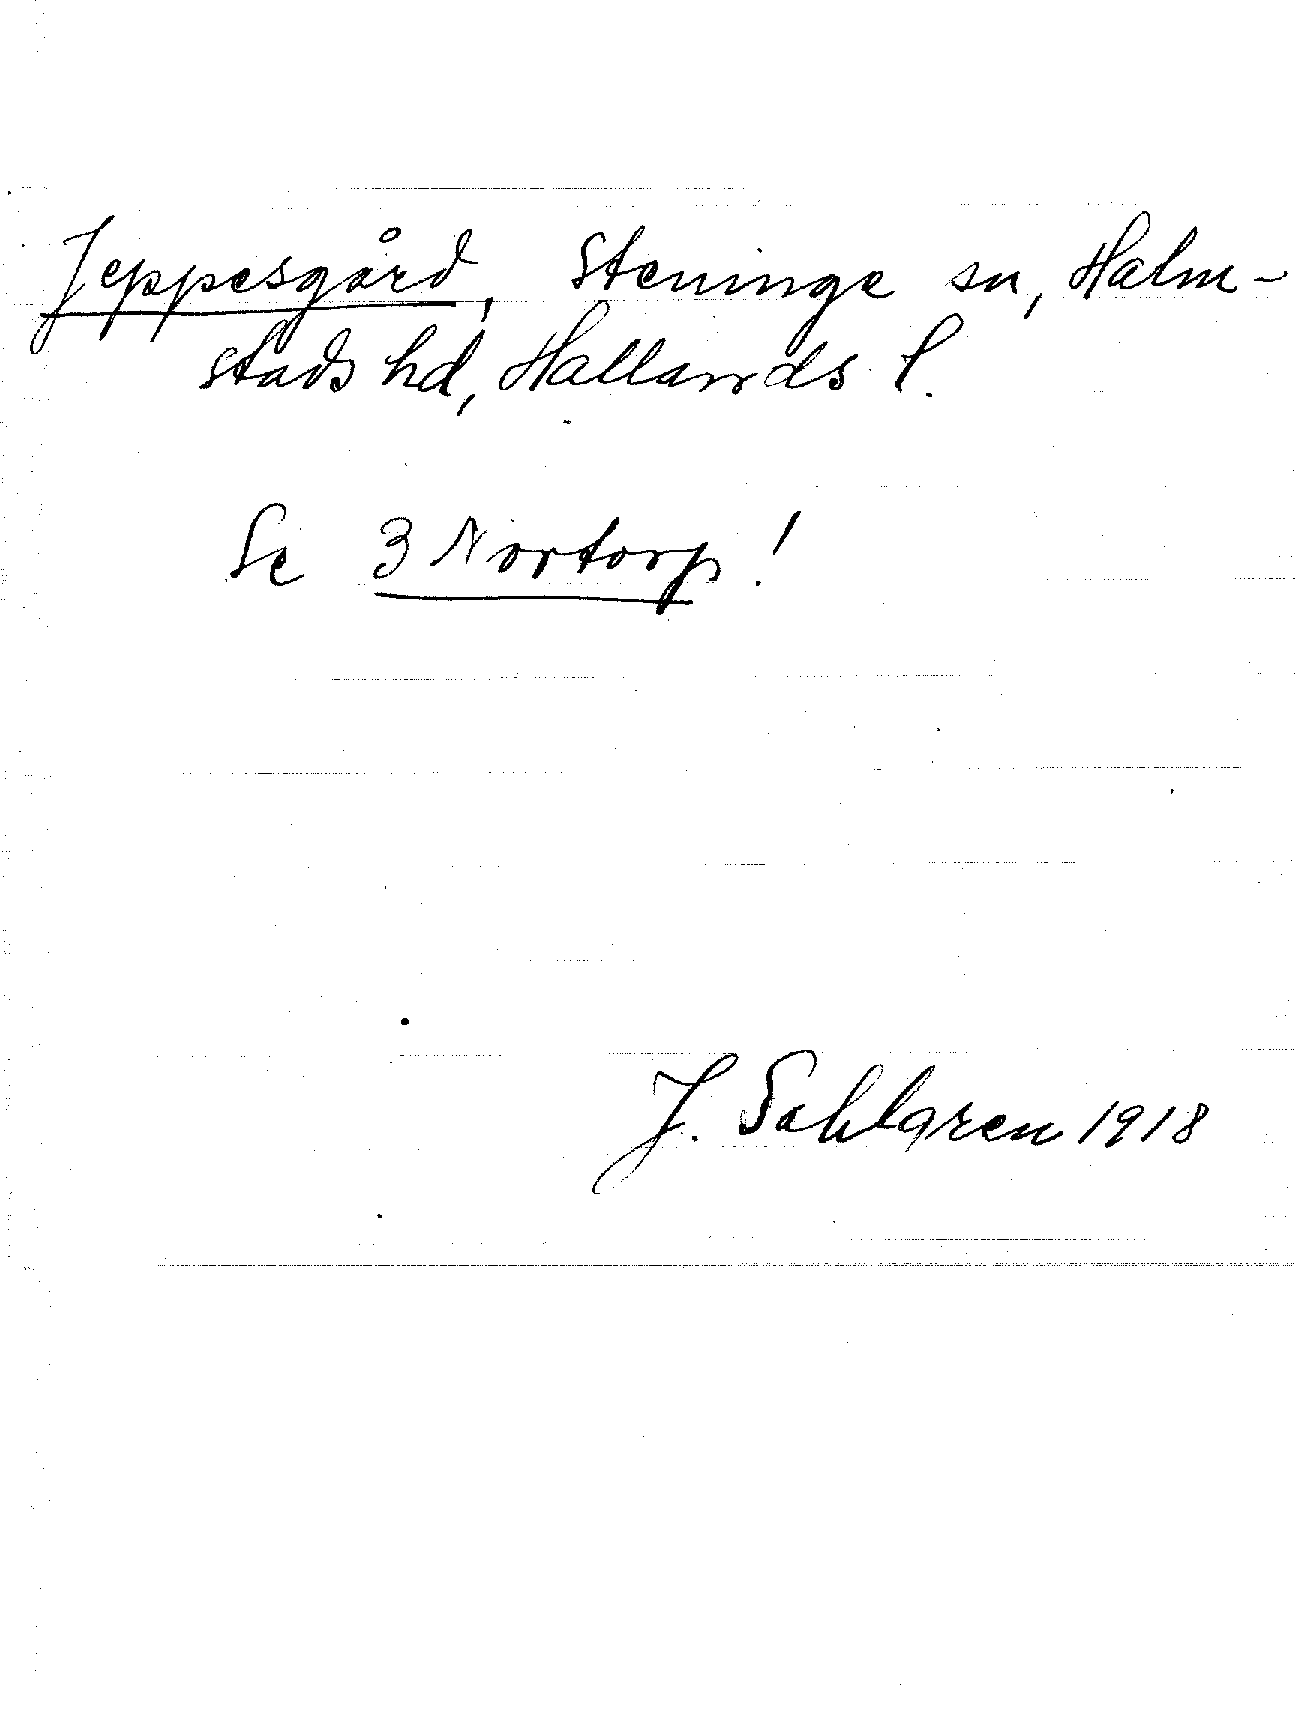 Jeppesgård, Steninge sn, Halm-
stads hd, Hallands l.
Se 3 Nortorp!
J. Sahlgren 1918